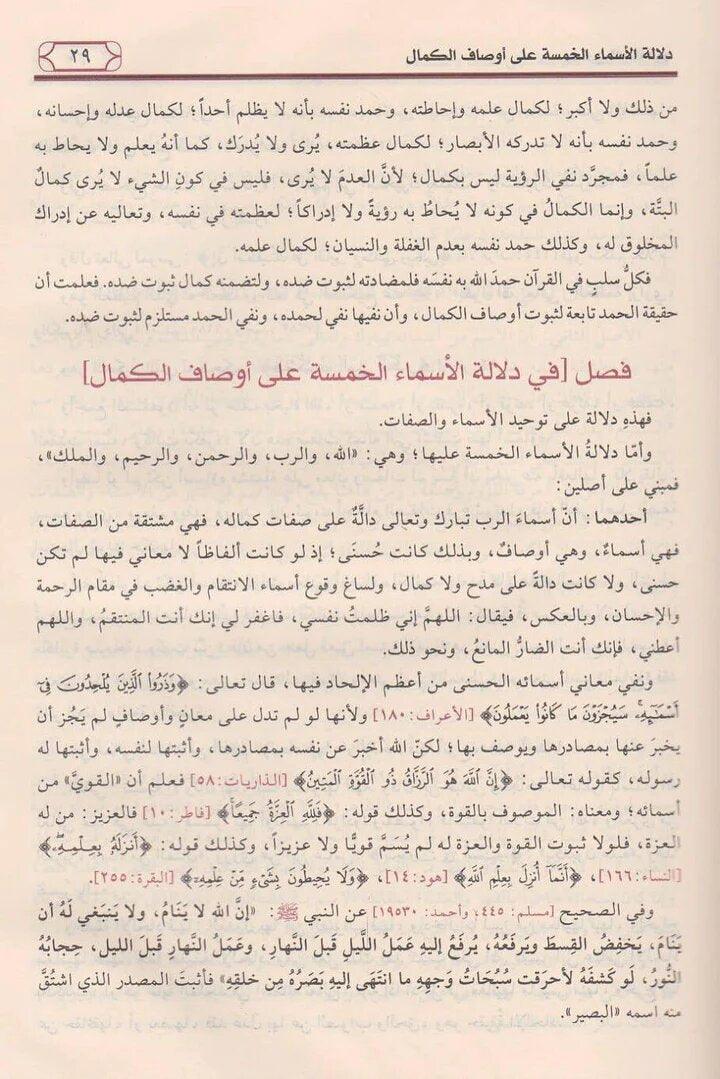 دلالة الأسماء الخمسة على أوصاف الكمال
٢٩
من ذلك ولا أكبر؛ لكمال علمه وإحاطته، وحمد نفسه بأنه لا يظلم أحداً؛ لكمال عدله وإحسانه،
وحمد نفسه بأنه لا تدركه الأبصار؛ لكمال عظمته، يُرى ولا يُدرَك، كما أنهُ يعلم ولا يحاط به
علماً، فمجرَّد نفي الرؤية ليس بكمال؛ لأنَّ العدمَ لا يُرى، فليس في كونِ الشيء لا يُرى كمالٌ
البتَّة، وإنما الكمالُ في كونه لا يُحاطُ به رؤيةً ولا إدراكاً؛ لعظمته في نفسه، وتعاليه عن إدراك
المخلوق له، وكذلك حمد نفسه بعدم الغفلة والنسيان؛ لكمال علمه.
فكلُّ سلبٍ في القرآن حمدَ الله به نفسَه فلمضادته لثبوت ضده، ولتضمنه كمال ثبوت ضده. فعلمت أن
حقيقة الحمد تابعة لثبوت أوصاف الكمال، وأن نفيها نفي لحمده، ونفي الحمد مستلزم لثبوت ضده.
فصل [في دلالة الأسماء الخمسة على أوصاف الكمال]
فهذهِ دلالة على توحيد الأسماء والصفات.
وأمّا دلالةُ الأسماء الخمسة عليها؛ وهي: «الله، والرب، والرحمن، والرحيم، والملك»،
فمبني على أصلين:
أحدهما: أنّ أسماءَ الرب تبارك وتعالى دالَّةٌ على صفات كماله، فهي مشتقة من الصفات،
فهي أسماءٌ، وهي أوصافٌ، وبذلك كانت حُسنَى؛ إذ لو كانت ألفاظاً لا معاني فيها لم تكن
حسنى، ولا كانت دالةً على مدح ولا كمال، ولساغ وقوع أسماء الانتقام والغضب في مقام الرحمة
والإحسان، وبالعكس، فيقال: اللهمَّ إني ظلمتُ نفسي، فاغفر لي إنك أنت المنتقمُ، واللهم
أعطني، فإنك أنت الضارُّ المانعُ، ونحو ذلك.
ونفي معاني أسمائه الحسنى من أعظم الإلحاد فيها، قال تعالى: ﴿وَذَرُوا۟ ٱلَّذِينَ يُلْحِدُونَ فِىٓ
أَسْمَٰٓئِهِۦ سَيُجْزَوْنَ مَا كَانُوا۟ يَعْمَلُونَ﴾ [الأعراف: ١٨٠] ولأنها لو لم تدل على معانٍ وأوصافٍ لم يَجُز أن
يخبرَ عنها بمصادرها ويوصف بها؛ لكنّ الله أخبرَ عن نفسه بمصادرها، وأثبتها لنفسه، وأثبتها له
رسوله، كقوله تعالى: ﴿إِنَّ ٱللَّهَ هُوَ ٱلرَّزَّاقُ ذُو ٱلْقُوَّةِ ٱلْمَتِينُ﴾ [الذاريات: ٥٨] فعلم أن «القويَّ» من
أسمائه؛ ومعناه: الموصوف بالقوة، وكذلك قوله: ﴿فَلِلَّهِ ٱلْعِزَّةُ جَمِيعًا﴾ [فاطر: ١٠] فالعزيز: من له
العزة، فلولا ثبوت القوة والعزة له لم يُسَمَّ قويًّا ولا عزيزاً، وكذلك قوله: ﴿أَنزَلَهُۥ بِعِلْمِهِۦ﴾
[النساء: ١٦٦]، ﴿أَنَّمَآ أُنزِلَ بِعِلْمِ ٱللَّهِ﴾ [هود: ١٤]، ﴿وَلَا يُحِيطُونَ بِشَىْءٍ مِّنْ عِلْمِهِۦٓ﴾ [البقرة: ٢٥٥].
وفي الصحيح [مسلم: ٤٤٥، وأحمد: ١٩٥٣٠] عن النبي ﷺ: «إنَّ الله لا يَنَامُ، ولا يَنبَغي لَهُ أن
يَنَامَ، يَخفِضُ القِسطَ ويَرفَعُهُ، يُرفَعُ إليهِ عَمَلُ اللَّيلِ قَبلَ النَّهارِ، وعَمَلُ النَّهارِ قَبلَ الليل، حِجابُهُ
النُّورُ، لَو كَشَفَهُ لأحرَقت سُبُحَاتُ وَجهِهِ ما انتَهَى إليهِ بَصَرُهُ مِن خلقِهِ» فأثبتَ المصدر الذي اشتُقَّ
منه اسمه «البصير».